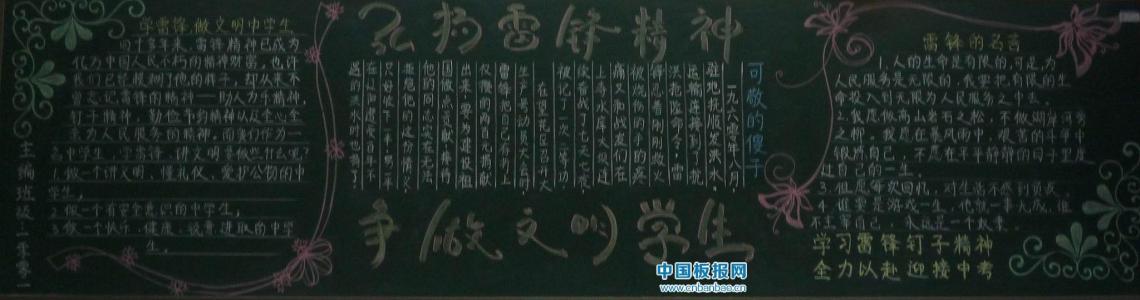 学雷锋,做文明中学生
四十多年来,雷锋精神已成为
化为中国人民不朽的精神财富。也许
精神——助人为乐精神,
钉子精神,勤俭节约精神以及全心全
意为人民服务的精神。
高中学生,学雷锋、讲文明要做些什么呢?
1.做一个讲文明、懂礼仪、爱护公物的中
学生。
2.做一个有安全意识的中学生;
3.做一个快乐、健康、锐意进取的中学
生。
主编班级:
弘扬雷锋精神
可敬的傻子
一九六零年八月,
驻地抚顺发洪水,
运输连接到了抗
洪抢险命令,雷
锋忍着刚刚救火
被烧伤的手的疼
痛又和战友们在
上寺水库大坝连
续奋战了七天七夜,
被记了一次二等功。
在望花区召开大
生产号动员大会时,
雷锋把自己存折上
仅攒的两百元捐献
出来,要为建设祖
国做点贡献,接待
他的同志实在无法
拒绝他的这份情义,
只好收下一半;另一
半在辽阳遭受百年不
遇的洪水时也捐了。
争做文明学生
中国板报网
www.cnbanbao.cn
雷锋的名言
1.人的生命是有限的,可是,为
人民服务是无限的,我要把有限的生
命投入到无限为人民服务之中去。
2.我愿做高山岩石之松,不做湖岸河旁
之柳。我愿在暴风雨中、艰苦的斗争中
锻炼自己,不愿在平平静静的日子里度
过自己的一生。
3.但愿每次回忆,对生活不感到负疚。
4.谁要是游戏一生,他就一事无成,谁
不主宰自己,永远是一个奴隶。
学习雷锋钉子精神
全力以赴迎接中考